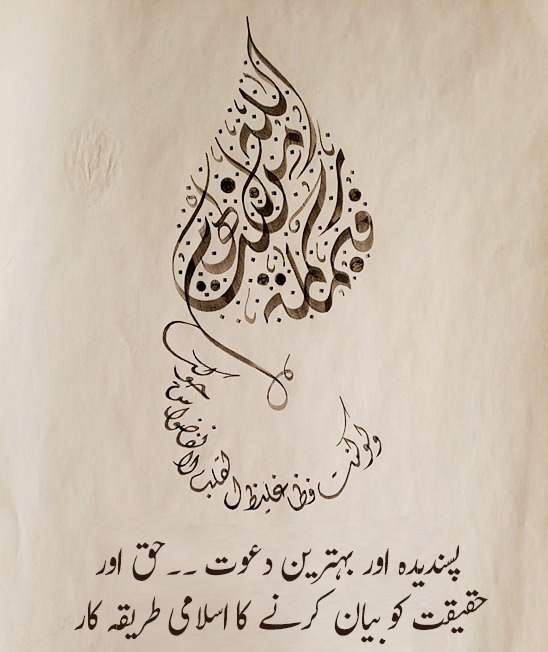 فبما رحمة من الله لنت لهم
ولو كنت فظا غليظ القلب لانفضوا من حولك
پسندیدہ اور بہترین دعوت ۔۔ حق اور
حقیقت کو بیان کرنے کا اسلامی طریقہ کار